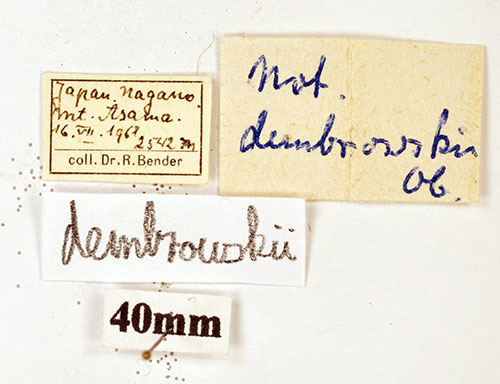 Japan. Nagano.
Mt. Asama.
16.VII.1968
2542 m
coll. Dr. R. Bender
Not.
dembrowskii
Ob.
dembrowskii
40mm